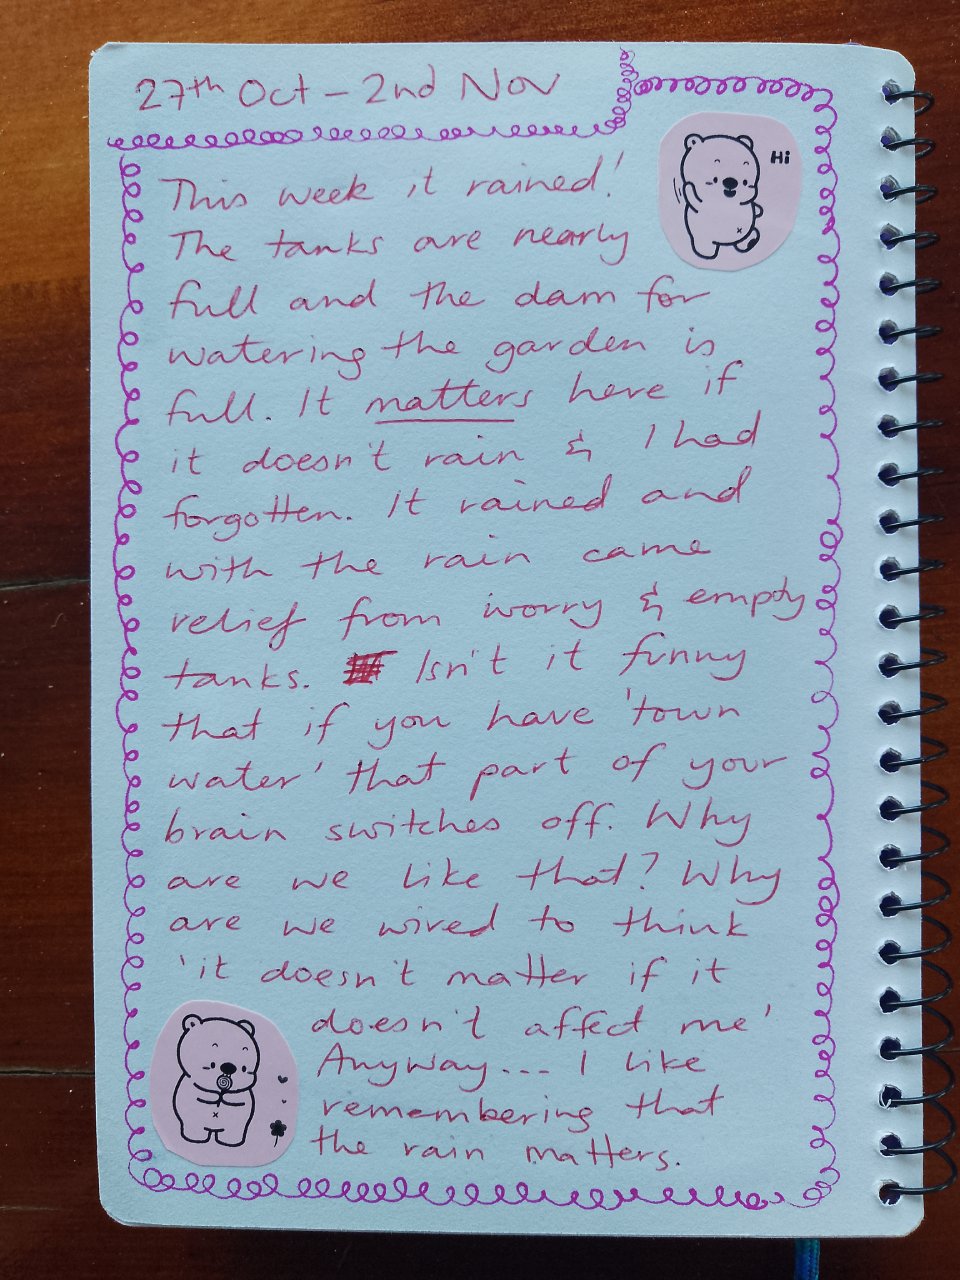 27th Oct - 2nd Nov
Hi
This week it rained!
The tanks are nearly
full and the dam for
watering the garden is
full. It matters here if
it doesn't rain & I had
forgotten. It rained and
with the rain came
relief from worry & empty
tanks. Isn't it funny
that if you have 'town
water' that part of your
brain switches off. Why
are we like that? Why
are we wired to think
'it doesn't matter if it
doesn't affect me'
Anyway... I like
remembering that
the rain matters.